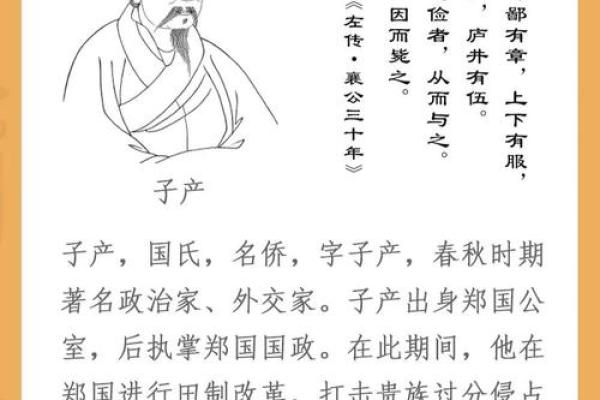 鄙有章，上下有服，
，庐井有伍。
俭者，从而与之。
因而毙之。
《左传·襄公三十年》
子产
子产，国氏，名侨，字子产，春秋时期
著名政治家、外交家。子产出身郑国公
室，后执掌郑国国政。在此期间，他在
郑国进行田制改革，打击贵族过分侵占